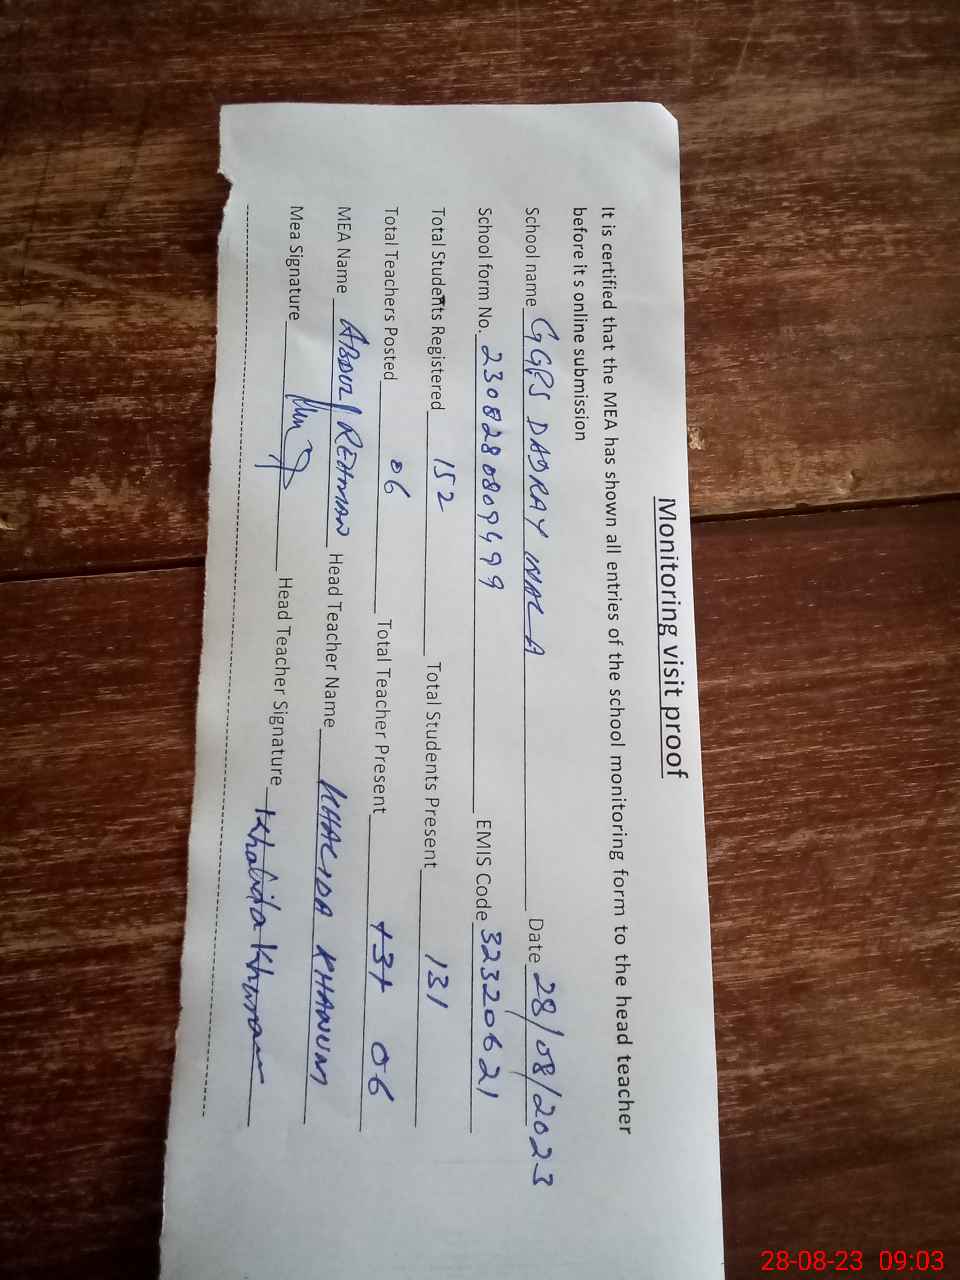 Monitoring visit proof
It is certified that the MEA has shown all entries of the school monitoring form to the head teacher
before it s online submission
School name GGPS DADRAY WALA Date 28/08/2023
School form No. 2308280809499 EMIS Code 32320621
Total Students Registered 152 Total Students Present 131
Total Teachers Posted 06 Total Teacher Present 131 06
MEA Name ABDUL REHMAN Head Teacher Name KHALIDA KHANUM
Mea Signature Head Teacher Signature Khalida Khanum
28-08-23 09:03